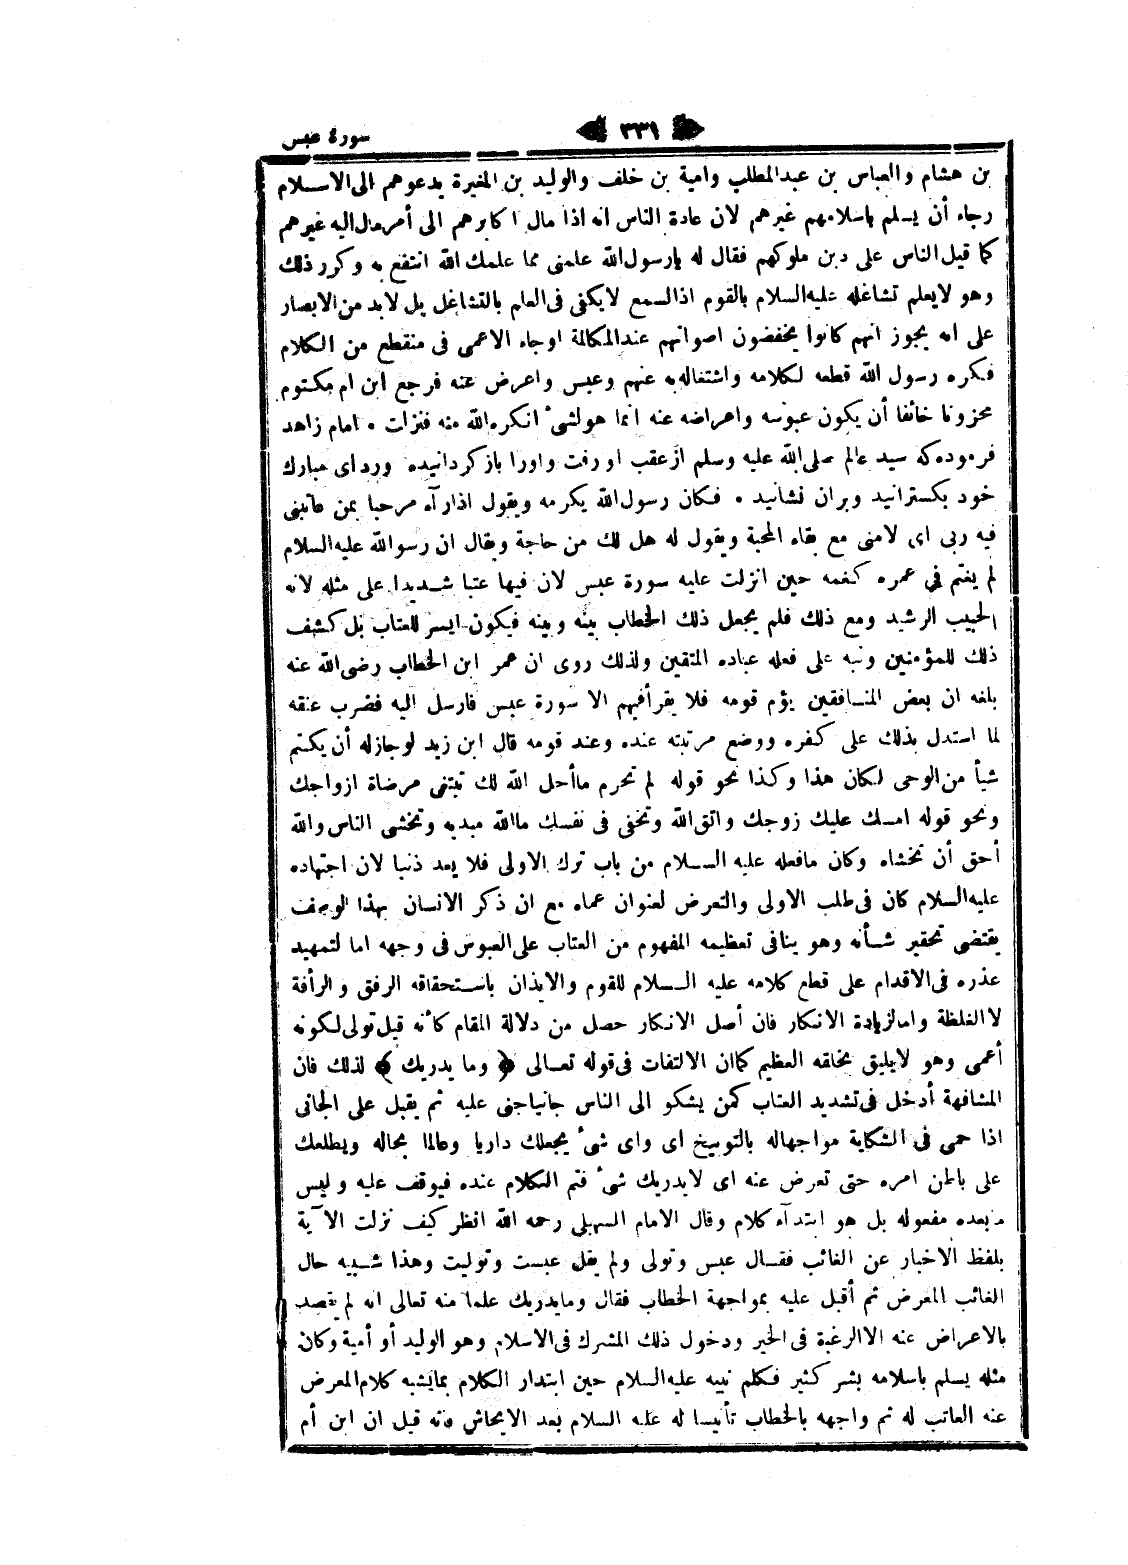 سورة عبس
٣٣١
بن هشام والعباس بن عبدالمطلب وامية بن خلف والوليد بن المغيرة يدعوهم الى الاسلام
رجاء أن يسلم باسلامهم غيرهم لان عادة الناس انه اذا مال اكابرهم الى أمر مال اليه غيرهم
كما قيل الناس على دين ملوكهم فقال له يارسول الله علمنى مما علمك الله انتفع به وكرر ذلك
وهو لايعلم تشاغله عليه السلام بالقوم اذ السمع لايكفى فى العلم بالتشاغل بل لابد من الابصار
على انه يجوز انهم كانوا يخفضون اصواتهم عند المكالمة اوجاء الاعمى فى منقطع من الكلام
فكره رسول الله قطعه لكلامه واشتغاله به عنهم وعبس واعرض عنه فرجع ابن ام مكتوم
محزونا خائفا أن يكون عبوسه واعراضه عنه انما هو لشئ انكره الله منه فنزلت ٠ امام زاهد
فرموده كه سيد عالم صلى الله عليه وسلم ازعقب او رفت واورا باز كردانيده ورداى مبارك
خود بكسترانيد وبران نشانيد ٠ فكان رسول الله يكرمه ويقول اذا رآه مرحبا بمن عاتبنى
فيه ربى اى لامنى مع بقاء المحبة ويقول له هل لك من حاجة ويقال ان رسوالله عليه السلام
لم يغتم فى عمره كغمه حين انزلت عليه سورة عبس لان فيها عتبا شديدا على مثله لانه
الحبيب الرشيد ومع ذلك فلم يجعل ذلك الخطاب بينه وبينه فيكون ايسر للعتاب بل كشف
ذلك للمؤمنين ونبه على فعله عباده المتقين ولذلك روى ان عمر ابن الخطاب رضى الله عنه
بلغه ان بعض المنافقين يؤم قومه فلا يقرأفيهم الا سورة عبس فارسل اليه فضرب عنقه
لما استدل بذلك على كفره ووضع مرتبته عنده وعند قومه قال ابن زيد لوجازله أن يكتم
شيأ من الوحى لكان هذا وكذا نحو قوله لم تحرم ماأحل الله لك تبتغى مرضاة ازواجك
ونحو قوله امسك عليك زوجك واتق الله وتخفى فى نفسك ماالله مبديه وتخشى الناس والله
أحق أن تخشاه وكان مافعله عليه السلام من باب ترك الاولى فلا يعد ذنبا لان اجتهاده
عليه السلام كان فى طلب الاولى والتعرض لعنوان عماه مع ان ذكر الانسان بهذا الوصف
يقتضى تحقير شأنه وهو ينافى تعظيمه المفهوم من العتاب على العبوس فى وجهه اما لتمهيد
عذره فى الاقدام على قطع كلامه عليه السلام للقوم والايذان باستحقاقه الرفق والرأفة
لا الغلظة وامالزيادة الانكار فان أصل الانكار حصل من دلالة المقام كأنه قيل تولى لكونه
أعمى وهو لايليق بخلقه العظيم كماان الالتفات فى قوله تعالى ﴿ وما يدريك ﴾ لذلك فان
المشافهة أدخل فى تشديد العتاب كمن يشكو الى الناس جانياجنى عليه ثم يقبل على الجانى
اذا حمى فى الشكاية مواجهاله بالتوبيخ اى واى شئ يجعلك داريا وعالما بحاله ويطلعك
على باطن امره حتى تعرض عنه اى لايدريك شئ فتم الكلام عنده فيوقف عليه وليس
مابعده مفعوله بل هو ابتدآء كلام وقال الامام السهيلى رحمه الله انظر كيف نزلت الآية
بلفظ الاخبار عن الغائب فقال عبس وتولى ولم يقل عبست وتوليت وهذا شبيه حال
الغائب المعرض ثم أقبل عليه بمواجهة الخطاب فقال ومايدريك علما منه تعالى انه لم يقصد
بالاعراض عنه الاالرغبة فى الخير ودخول ذلك المشرك فى الاسلام وهو الوليد أو أمية وكان
مثله يسلم باسلامه بشر كثير فكلم نبيه عليه السلام حين ابتدار الكلام بمايشبه كلام المعرض
عنه العاتب له ثم واجهه بالخطاب تأنيسا له عليه السلام بعد الايحاش فانه قيل ان ابن أم